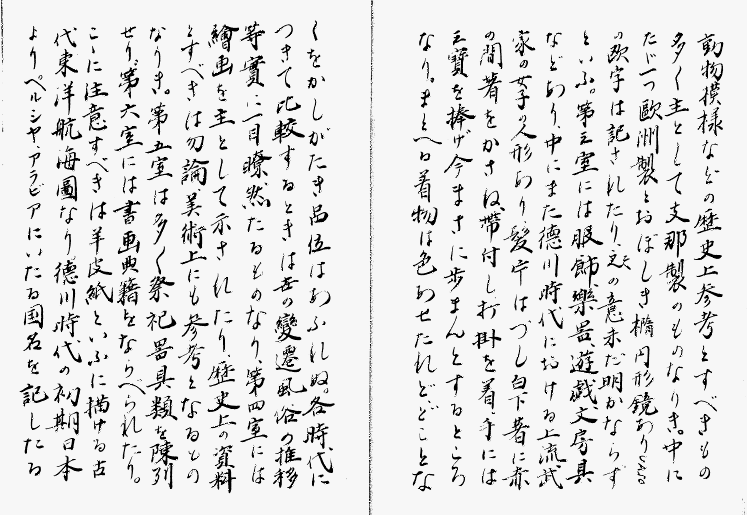 動物模様などの歴史上参考とすべきもの
多く主として支那製のものなりき。中に
たゞ一つ歐洲製とおぼしき橢円形鏡あり
の欧字は記されたり、之の意未だ明かならず
といふ。第三室には服飾樂器、遊戯文房具
などあり、中にまた德川時代における上流武
家の女子の人形あり髪はづし白下着に赤
の間着をかさね、帯付し打掛を着、手には
玉寶を捧げ今まさに歩まんとするところ
なり。まとへる着物は色あせたれどどことな
くをかしがたき品位はあふれぬ。各時代に
つきて比較するときは世の變遷風俗の推移
等實に一目瞭然たるものなり、第四室には
繪画を主として示されたり、歴史上の資料
とすべきは勿論、美術上にも参考となるもの
なりき。第五室は多く祭祀器具類を陳列
せり、第六室には書画典籍をならべられたり。
こゝに注意すべきは羊皮紙といふに描ける古
代東洋航海圖なり德川時代の初期日本
よりペルシヤ、アラビアにいたる国名を記したる